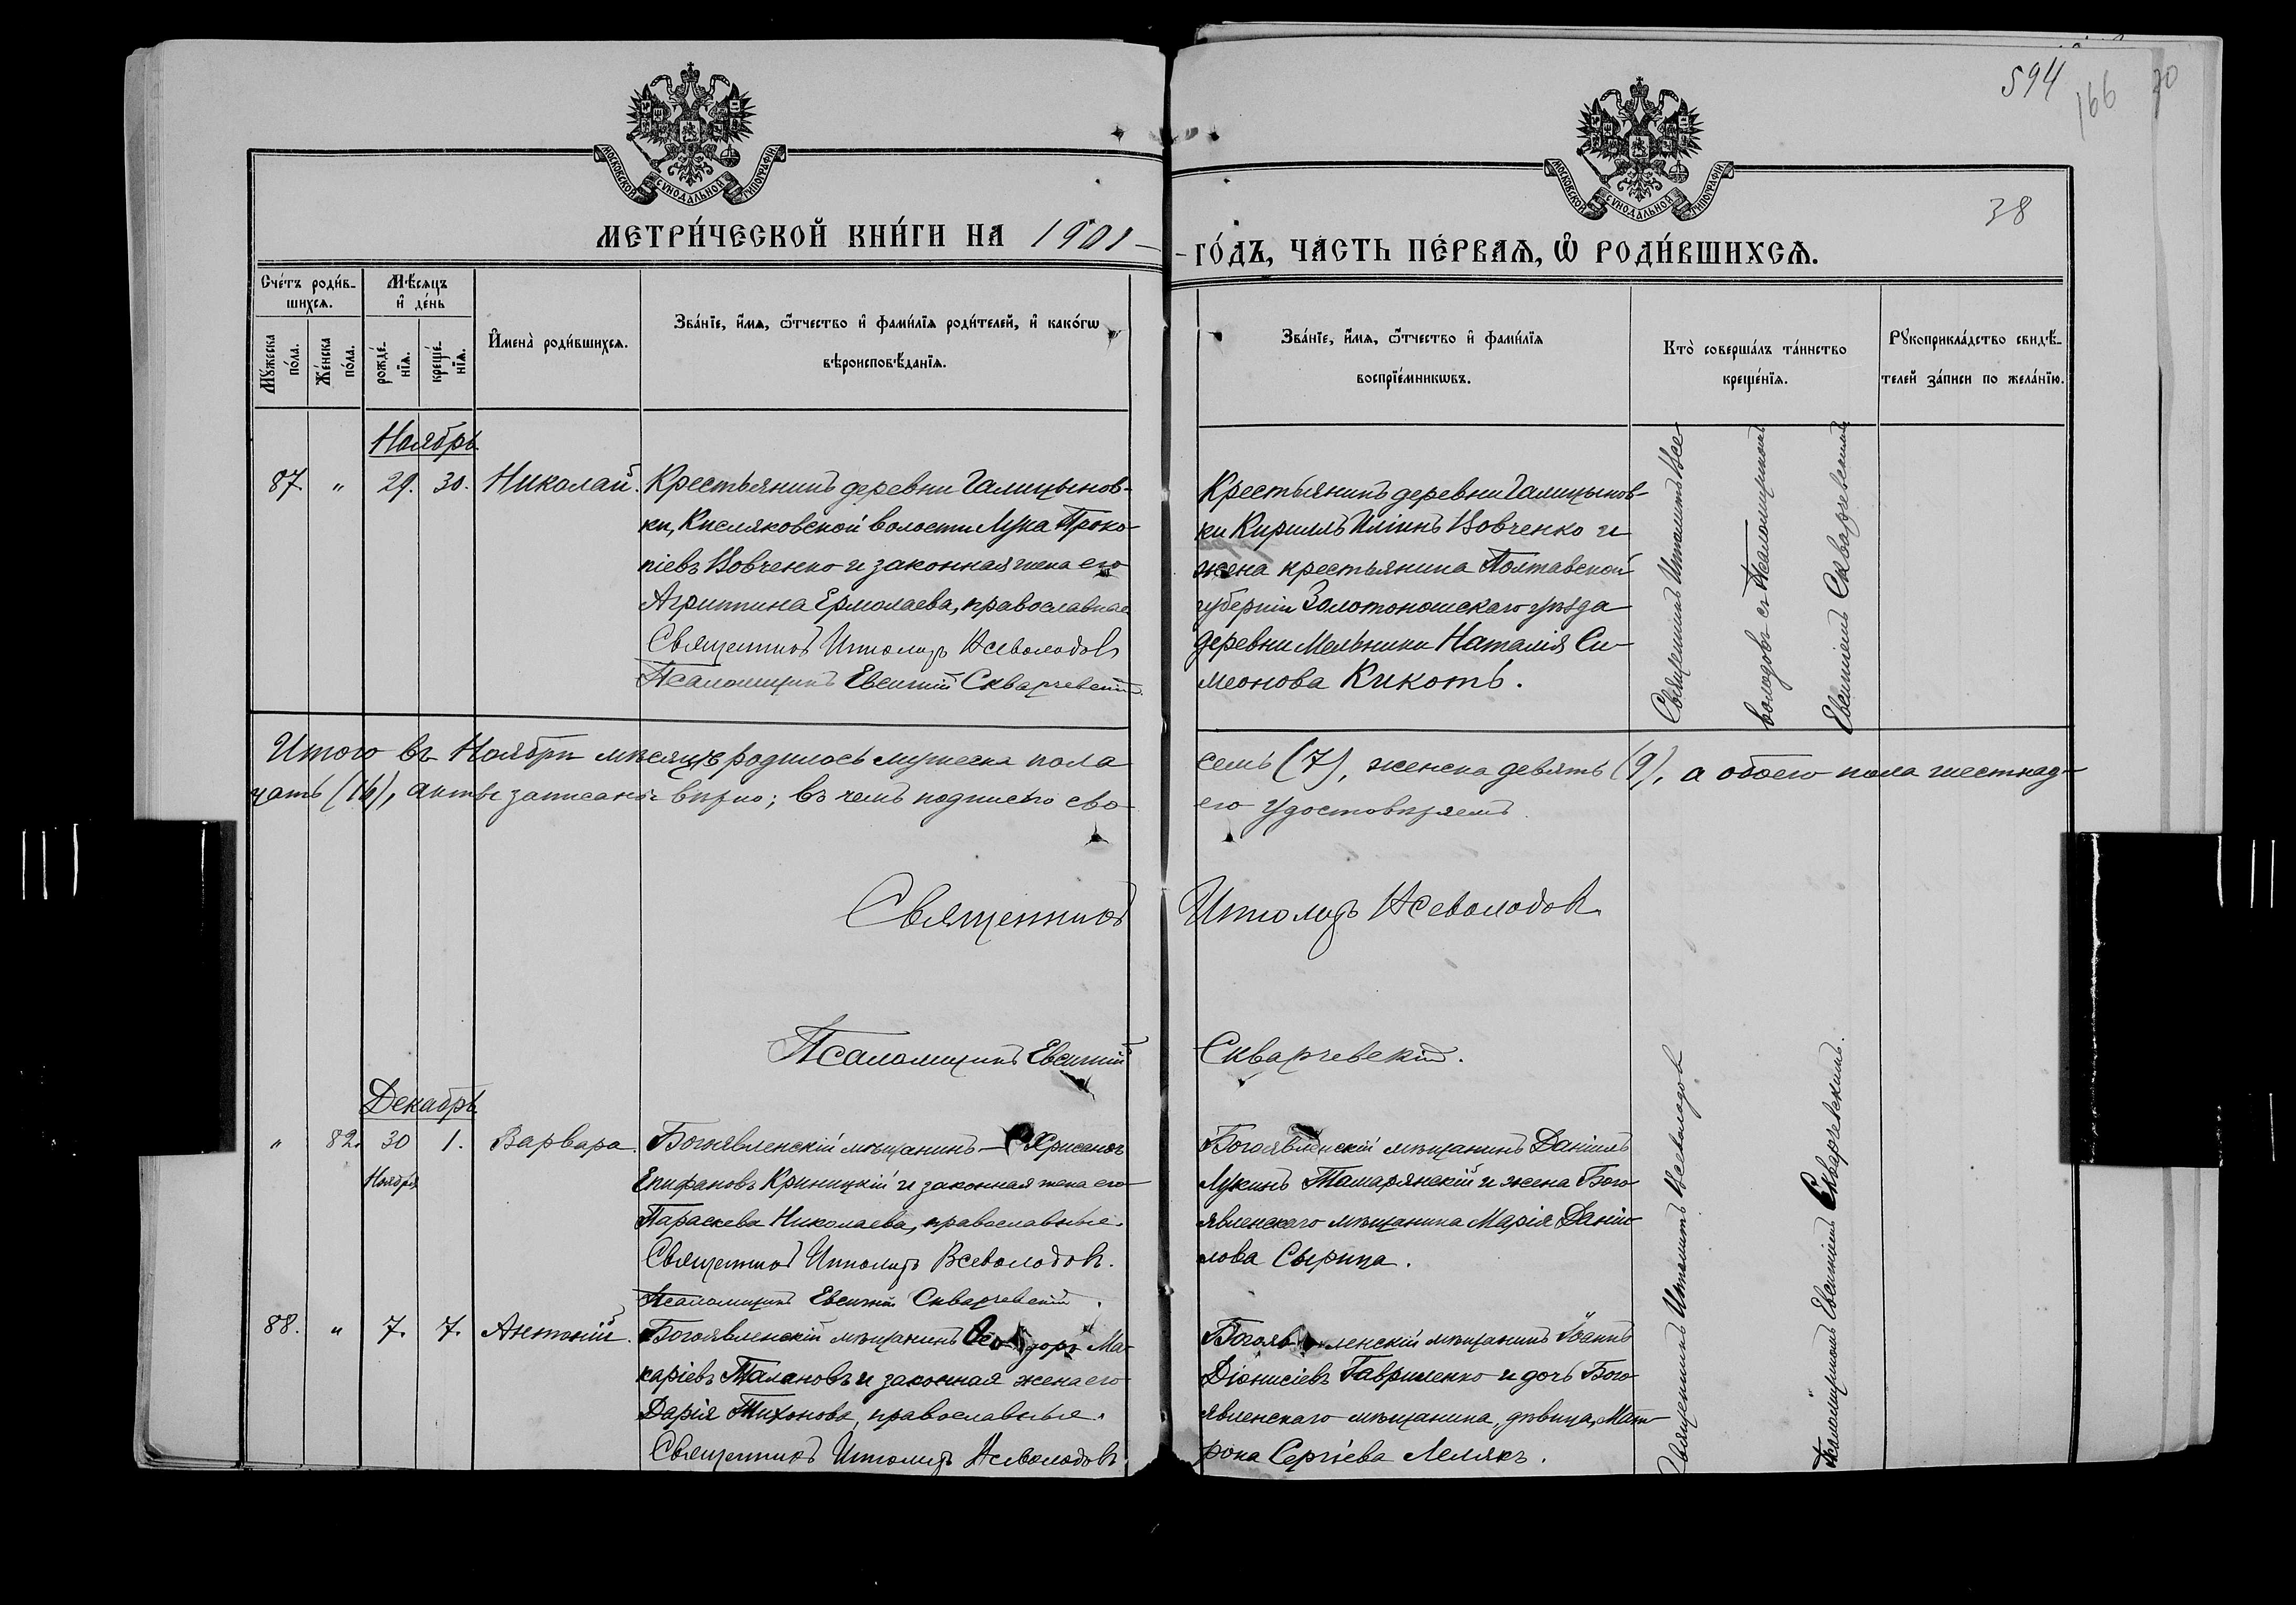 594
166
70
38
МОСКОВСКОЙ СѴНОДАЛЬНОЙ ТИПОГРАФІИ
МОСКОВСКОЙ СѴНОДАЛЬНОЙ ТИПОГРАФІИ
МЕТРИ́ЧЕСКОЙ КНИ́ГИ НА 1901 –
– ГО́ДЪ, ЧА́СТЬ ПЕ́РВАѦ, Ѡ҆ РОДИ́ВШИХСѦ.
Сче́тъ роди́в-
шихсѧ.
Мꙋ́жеска
по́ла.
Же́нска
по́ла.
Мѣ́сѧцъ
и҆ де́нь
рожде́-
нїѧ.
креще́-
нїѧ.
И҆мена̀ роди́вшихсѧ.
Зва́нїе, и҆́мѧ, ѻ҆́тчество и҆ фами́лїѧ роди́телей, и҆ како́гѡ
вѣроисповѣ́данїѧ.
Зва́нїе, и҆́мѧ, ѻ҆́тчество и҆ фами́лїѧ
воспрїе́мникѡвъ.
Кто̀ соверша́лъ та́инство
креще́нїѧ.
Рꙋкоприкла́дство свидѣ́-
телей за́писи по жела́нїю.
Ноябрь
87. " 29. 30. Николай.
Крестьянинъ деревни Галицынов-
ки, Кисляковской волости Лука Проко-
піевъ Вовченко и законная жена его
Агриппина Ермолаева, православные
Священникъ Ипполитъ Всеволодовъ
Псаломщикъ Евсигній Скваржевскій
Крестьянинъ деревни Галицынов-
ки Кириллъ Иліинъ Вовченко и
жена крестьянина Полтавской
губерніи Золотоношскаго уѣзда
деревни Мельники Наталія Си-
меонова Кикоть.
Священникъ Ипполитъ Все-
володовъ съ Псаломщикомъ
Евсигніемъ Скваржевскимъ
Итого въ Ноябрѣ мѣсяцѣ родилось мужеска пола семь (7), женска девять (9), а обоего пола шестнад-
цать (16), акты записаны вѣрно; въ чемъ подписью сво- его удостовѣряемъ.
Священникъ Ипполитъ Всеволодовъ
Псаломщикъ Евсигній Скваржевскій.
Декабрь
" 82. 30 1. Варвара.
Ноября
Богоявленскій мѣщанинъ – Хрисанѳъ
Епифановъ Криницкій и законная жена его
Параскева Николаева, православные.
Священникъ Ипполитъ Всеволодовъ.
Псаломщикъ Евсигній Скваржевскій.
Богоявленскій мѣщанинъ Даніилъ
Лукинъ Тамарянскій и жена Бого-
явленскаго мѣщанина Марія Даніи-
лова Сырица.
88. " 7. 7. Антоній.
Богоявленскій мѣщанинъ Ѳеодоръ Ма-
каріевъ Талановъ и законная жена его
Дарія Тихонова, православные.
Священникъ Ипполитъ Всеволодовъ
Богоявленскій мѣщанинъ Іоаннъ
Діонисіевъ Гавриленко и дочь Бого-
явленскаго мѣщанина, дѣвица, Мат-
рона Сергіева Лелякъ.
Священникъ Ипполитъ Всеволодовъ
Псаломщикомъ Евсигніемъ Скваржевскимъ.